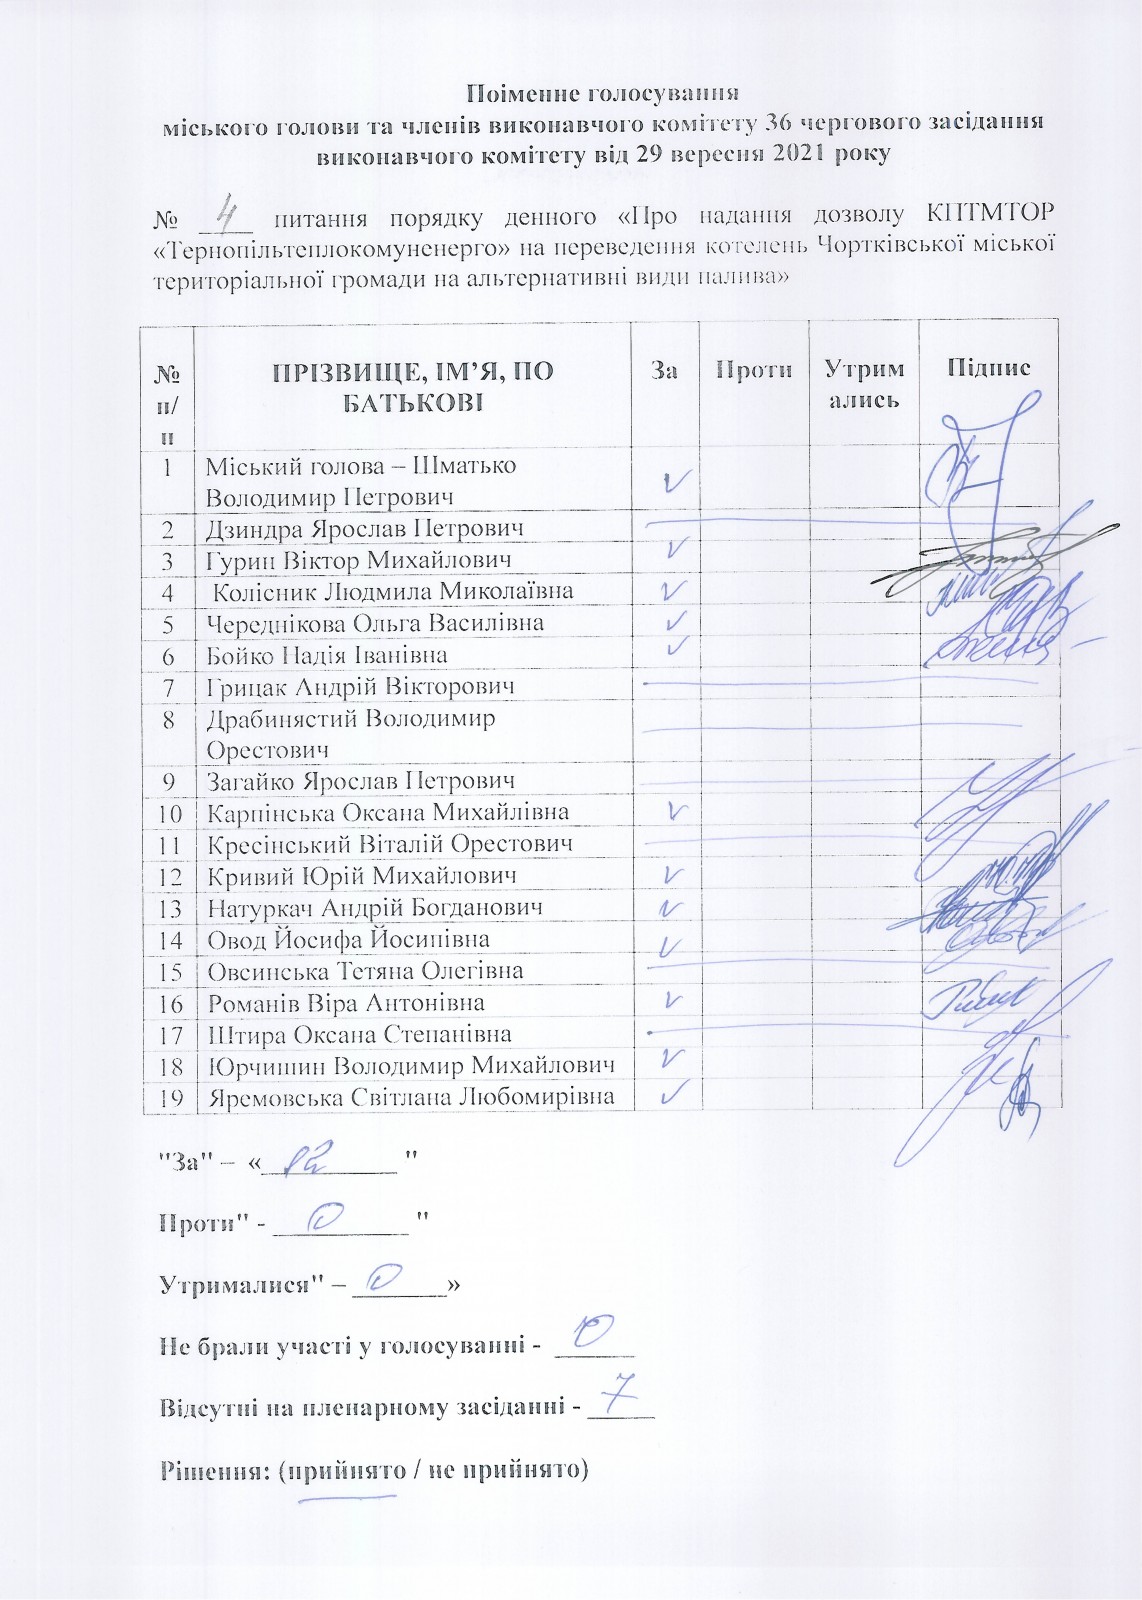 Поіменне голосування
міського голови та членів виконавчого комітету 36 чергового засідання
виконавчого комітету від 29 вересня 2021 року
№ 4 питання порядку денного «Про надання дозволу КПТМТОР
«Тернопільтеплокомуненерго» на переведення котелень Чортківської міської
територіальної громади на альтернативні види палива»
№ п/п ПРІЗВИЩЕ, ІМ’Я, ПО БАТЬКОВІ За Проти Утрим ались Підпис
1 Міський голова – Шматько
Володимир Петрович V
2 Дзиндра Ярослав Петрович
3 Гурин Віктор Михайлович V
4 Колісник Людмила Миколаївна V
5 Череднікова Ольга Василівна V
6 Бойко Надія Іванівна V
7 Грицак Андрій Вікторович
8 Драбинястий Володимир
Орестович
9 Загайко Ярослав Петрович
10 Карпінська Оксана Михайлівна V
11 Кресінський Віталій Орестович
12 Кривий Юрій Михайлович V
13 Натуркач Андрій Богданович V
14 Овод Йосифа Йосипівна V
15 Овсинська Тетяна Олегівна
16 Романів Віра Антонівна V
17 Штира Оксана Степанівна
18 Юрчишин Володимир Михайлович V
19 Яремовська Світлана Любомирівна V
"За" – « 12 "
Проти" - 0 "
Утрималися" – 0 »
Не брали участі у голосуванні - 0
Відсутні на пленарному засіданні - 7
Рішення: (прийнято / не прийнято)